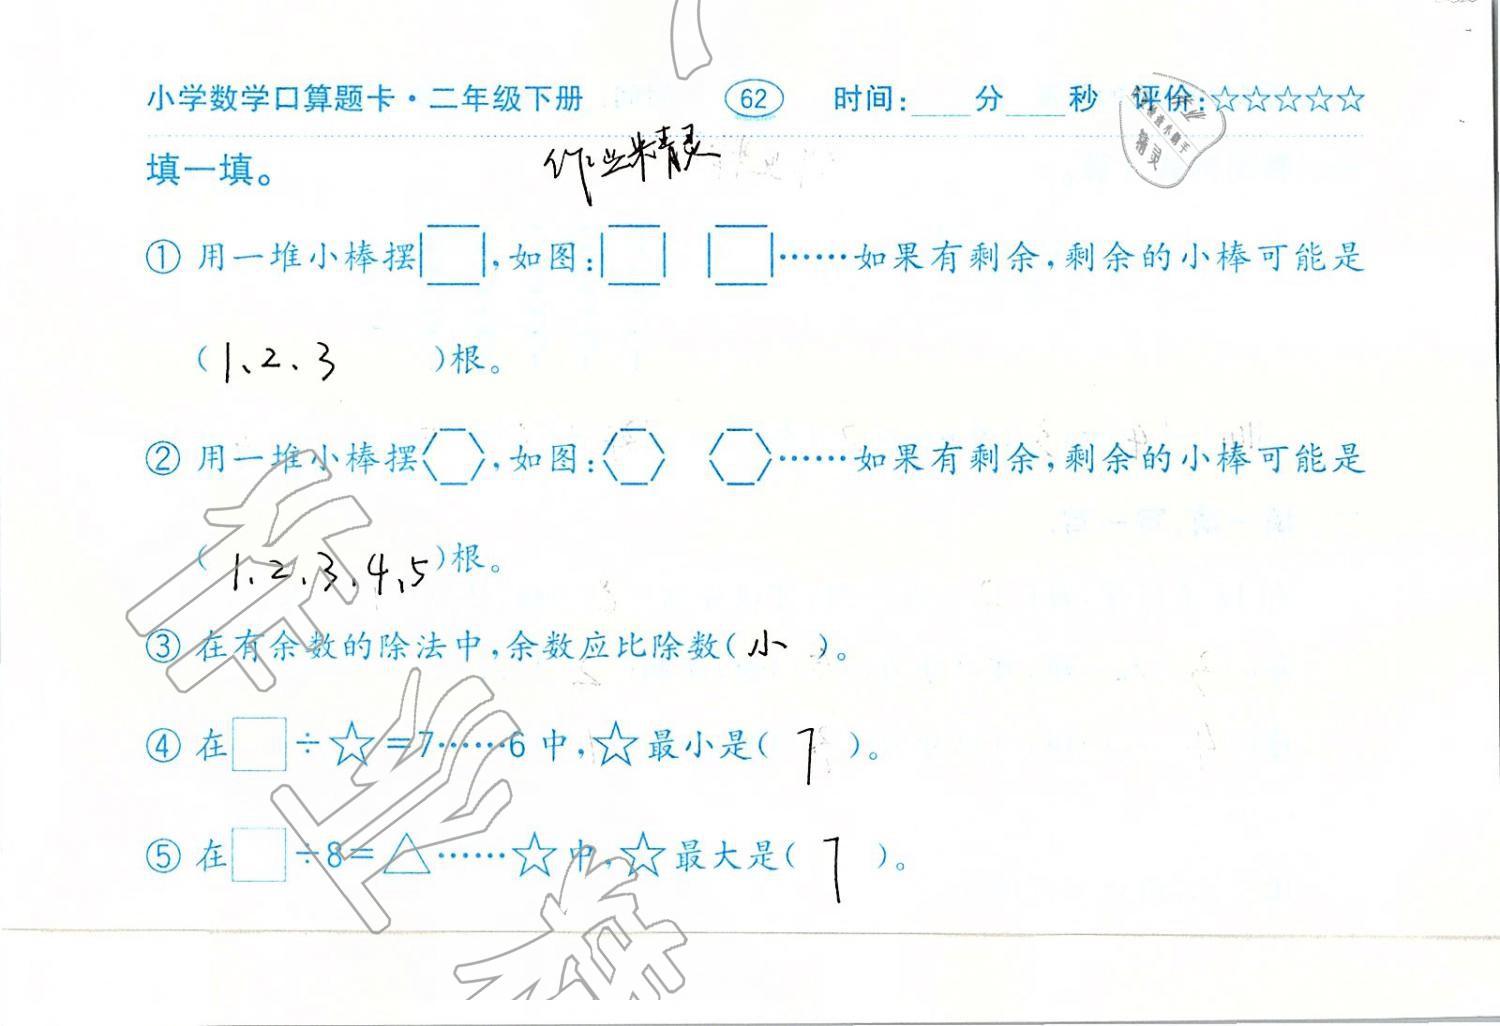 小学数学口算题卡·二年级下册 62 时间:____分____秒 评价:☆☆☆☆☆
填一填。 作业精灵
① 用一堆小棒摆□,如图:□ □……如果有剩余,剩余的小棒可能是
(1、2、3)根。
② 用一堆小棒摆⬡,如图:⬡ ⬡……如果有剩余,剩余的小棒可能是
(1、2、3、4、5)根。
③ 在有余数的除法中,余数应比除数(小)。
④ 在□÷☆=7……6中,☆最小是(7)。
⑤ 在□÷8=△……☆中,☆最大是(7)。